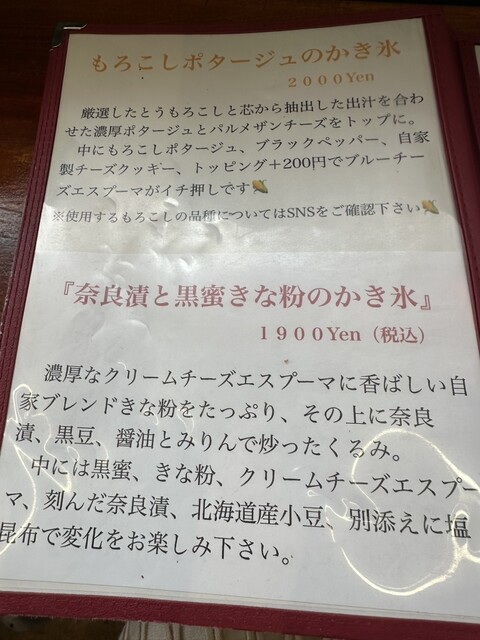 もろこしポタージュのかき氷
2000Yen
厳選したとうもろこしと芯から抽出した出汁を合わ
せた濃厚ポタージュとパルメザンチーズをトップに。
中にもろこしポタージュ、ブラックペッパー、自家
製チーズクッキー、トッピング+200円でブルーチー
ズエスプーマがイチ押しです🌽
※使用するもろこしの品種についてはSNSをご確認下さい🌽
『奈良漬と黒蜜きな粉のかき氷』
1900Yen（税込）
濃厚なクリームチーズエスプーマに香ばしい自
家ブレンドきな粉をたっぷり、その上に奈良
漬、黒豆、醤油とみりんで炒ったくるみ。
中には黒蜜、きな粉、クリームチーズエスプー
マ、刻んだ奈良漬、北海道産小豆、別添えに塩
昆布で変化をお楽しみ下さい。